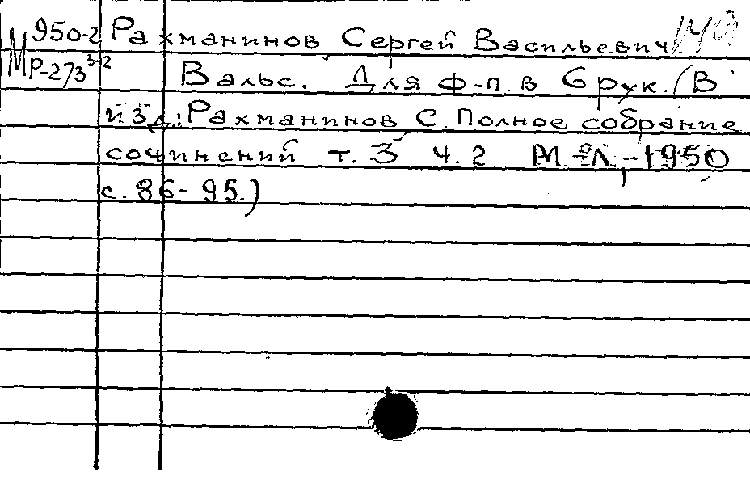 М 950-2 Рахманинов Сергей Васильевич
Р-273 3-2 Вальс. Для ф-п в 6 рук. (В
изд.: Рахманинов С. Полное собрание
сочинений т. 3 ч. 2 М.-Л., 1950
с. 86-95.)